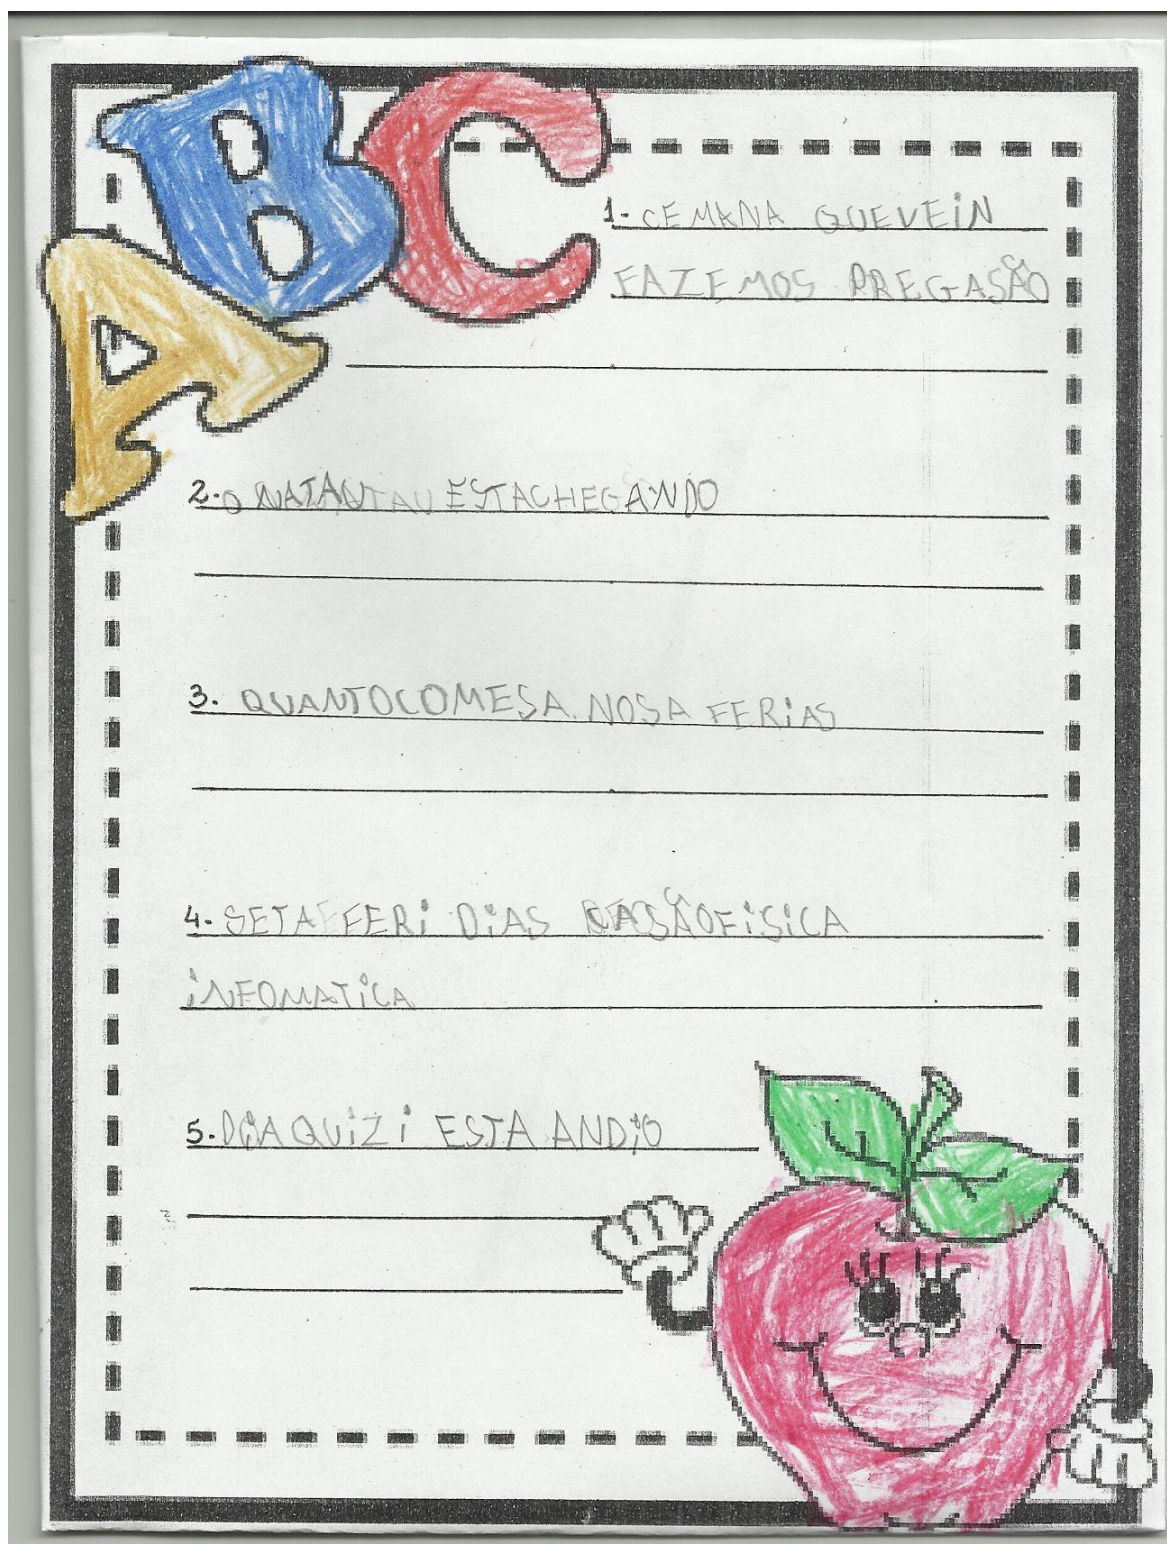 ABC
1- CEMANA QUEVEIN
FAZEMOS PREGASÃO
2- O NATAU ESTACHEGANDO
3. QUANTOCOMESA NOSA FERIAS
4- SETAFFERI DIAS SÃOFISICA
INFOMATICA
5- DIAQUIZI ESTA ANDIO